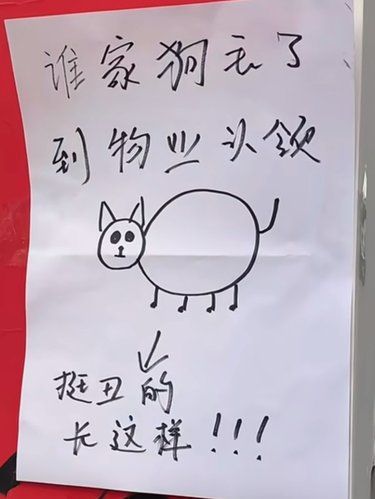 谁家狗丢了
到物业认领
挺丑的
长这样!!!